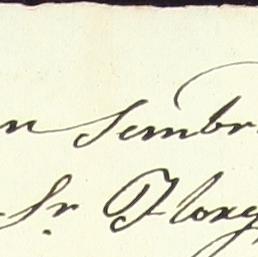 n Sembr
Sr Florg